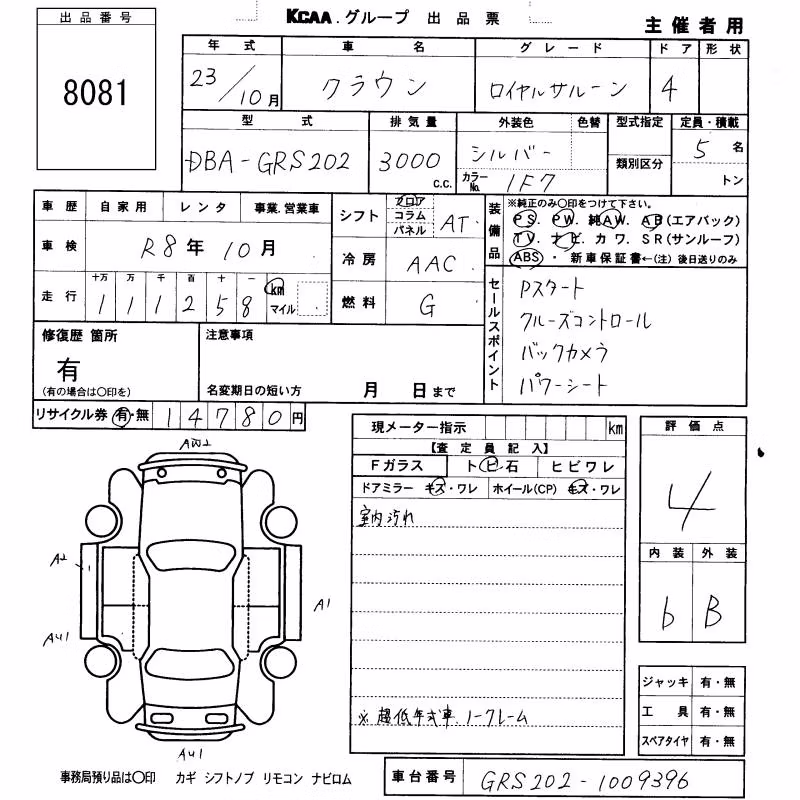 出品番号
8081
KCAA.グループ 出品票
主催者用
年式 車名 グレード ドア 形状
23/10月 クラウン ロイヤルサルーン 4
型式 排気量 外装色 色替 型式指定 定員・積載
DBA-GRS202 3000 c.c. シルバー 5名
カラーNo. 1F7 類別区分 トン
車歴 自家用 レンタ 事業.営業車
シフト フロア コラム パネル AT
車検 R8年10月
冷房 AAC
走行 十万 万 千 百 十 一
111258 km マイル
燃料 G
装備品
※純正のみ〇印をつけて下さい。
PS. PW. 純AW. AB(エアバック)
TV. ナビ. カワ. SR(サンルーフ)
ABS・新車保証書←(注)後日送りのみ
セールスポイント
Pスタート
クルーズコントロール
バックカメラ
パワーシート
修復歴 箇所
有
(有の場合は〇印を)
注意事項
名変期日の短い方 月 日まで
リサイクル券 有・無 14780円
現メーター指示 km
【査定員記入】
Fガラス トビ石 ヒビワレ
ドアミラー キズ・ワレ ホイール(CP) キズ・ワレ
室内汚れ
※超低年式車、ノークレーム
評価点
4
内装 外装
b B
ジャッキ 有・無
工具 有・無
スペアタイヤ 有・無
AW2
A2
A1
AU1
AU1
事務局預り品は〇印 カギ シフトノブ リモコン ナビロム
車台番号 GRS202-1009396